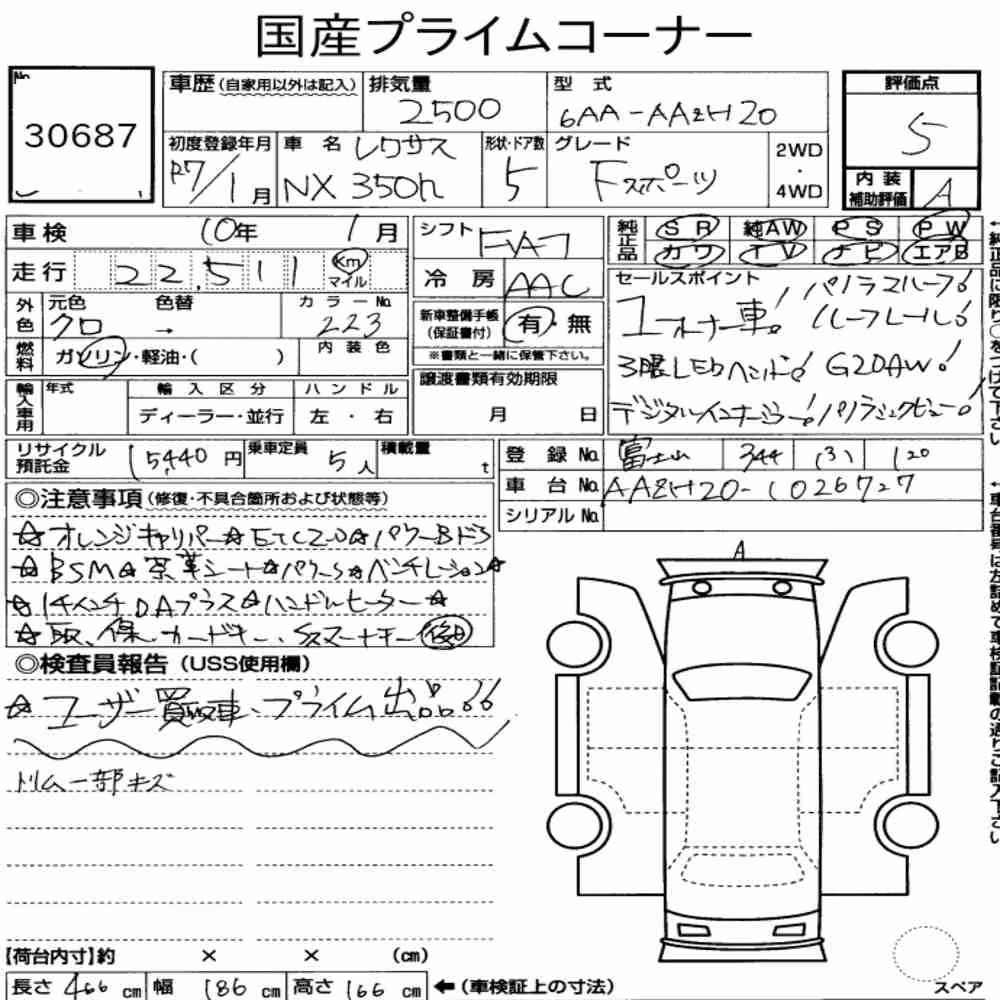 国産プライムコーナー
No
30687
車歴(自家用以外は記入)
排気量
2500
型式
6AA-AAZH20
評価点
5
初度登録年月
R7/1月
車名 レクサス
NX 350h
形状・ドア数
5
グレード
Fスポーツ
2WD
・
4WD
内装
補助評価
A
車検 10年 1月
走行 22,511 Km
マイル
外色
元色
クロ
色替
→
カラーNo.
223
燃料
ガソリン・軽油・( )
内装色
輸入車用
年式
輸入区分
ディーラー・並行
ハンドル
左・右
シフト FAT
冷房 AAC
新車整備手帳
(保証書付)
有・無
※書類と一緒に保管下さい。
譲渡書類有効期限
月 日
純正品
SR 純AW PS PW
カワ TV ナビ エアB
セールスポイント
1オーナー車! パノラマルーフ!
ルーフレール!
3眼LEDヘッド! G20AW!
デジタルインナーミラー! パノラミックビュー!
←純正品に限り○をつけて下さい
リサイクル
預託金
15440円
乗車定員
5人
積載量
t
登録No. 富士山 344 (ろ) 120
車台No. AAZH20-1026727
シリアルNo.
←車台番号は左詰めで車検証記載の通りご記入下さい
◎注意事項(修復・不具合箇所および状態等)
☆オレンジキャリパー☆ETC2.0☆パワーBドア
☆BSM☆茶革シート☆パワーS☆ベンチレーション☆
☆14インチDAプラス☆ハンドルヒーター☆
☆取、保、カードキー、Sスマートキー 後日
◎検査員報告(USS使用欄)
☆ユーザー買取車、プライム出品!!
トリム一部キズ
A
【荷台内寸】約 × × (cm)
長さ 466 cm 幅 186 cm 高さ 166 cm ←(車検証上の寸法)
スペア